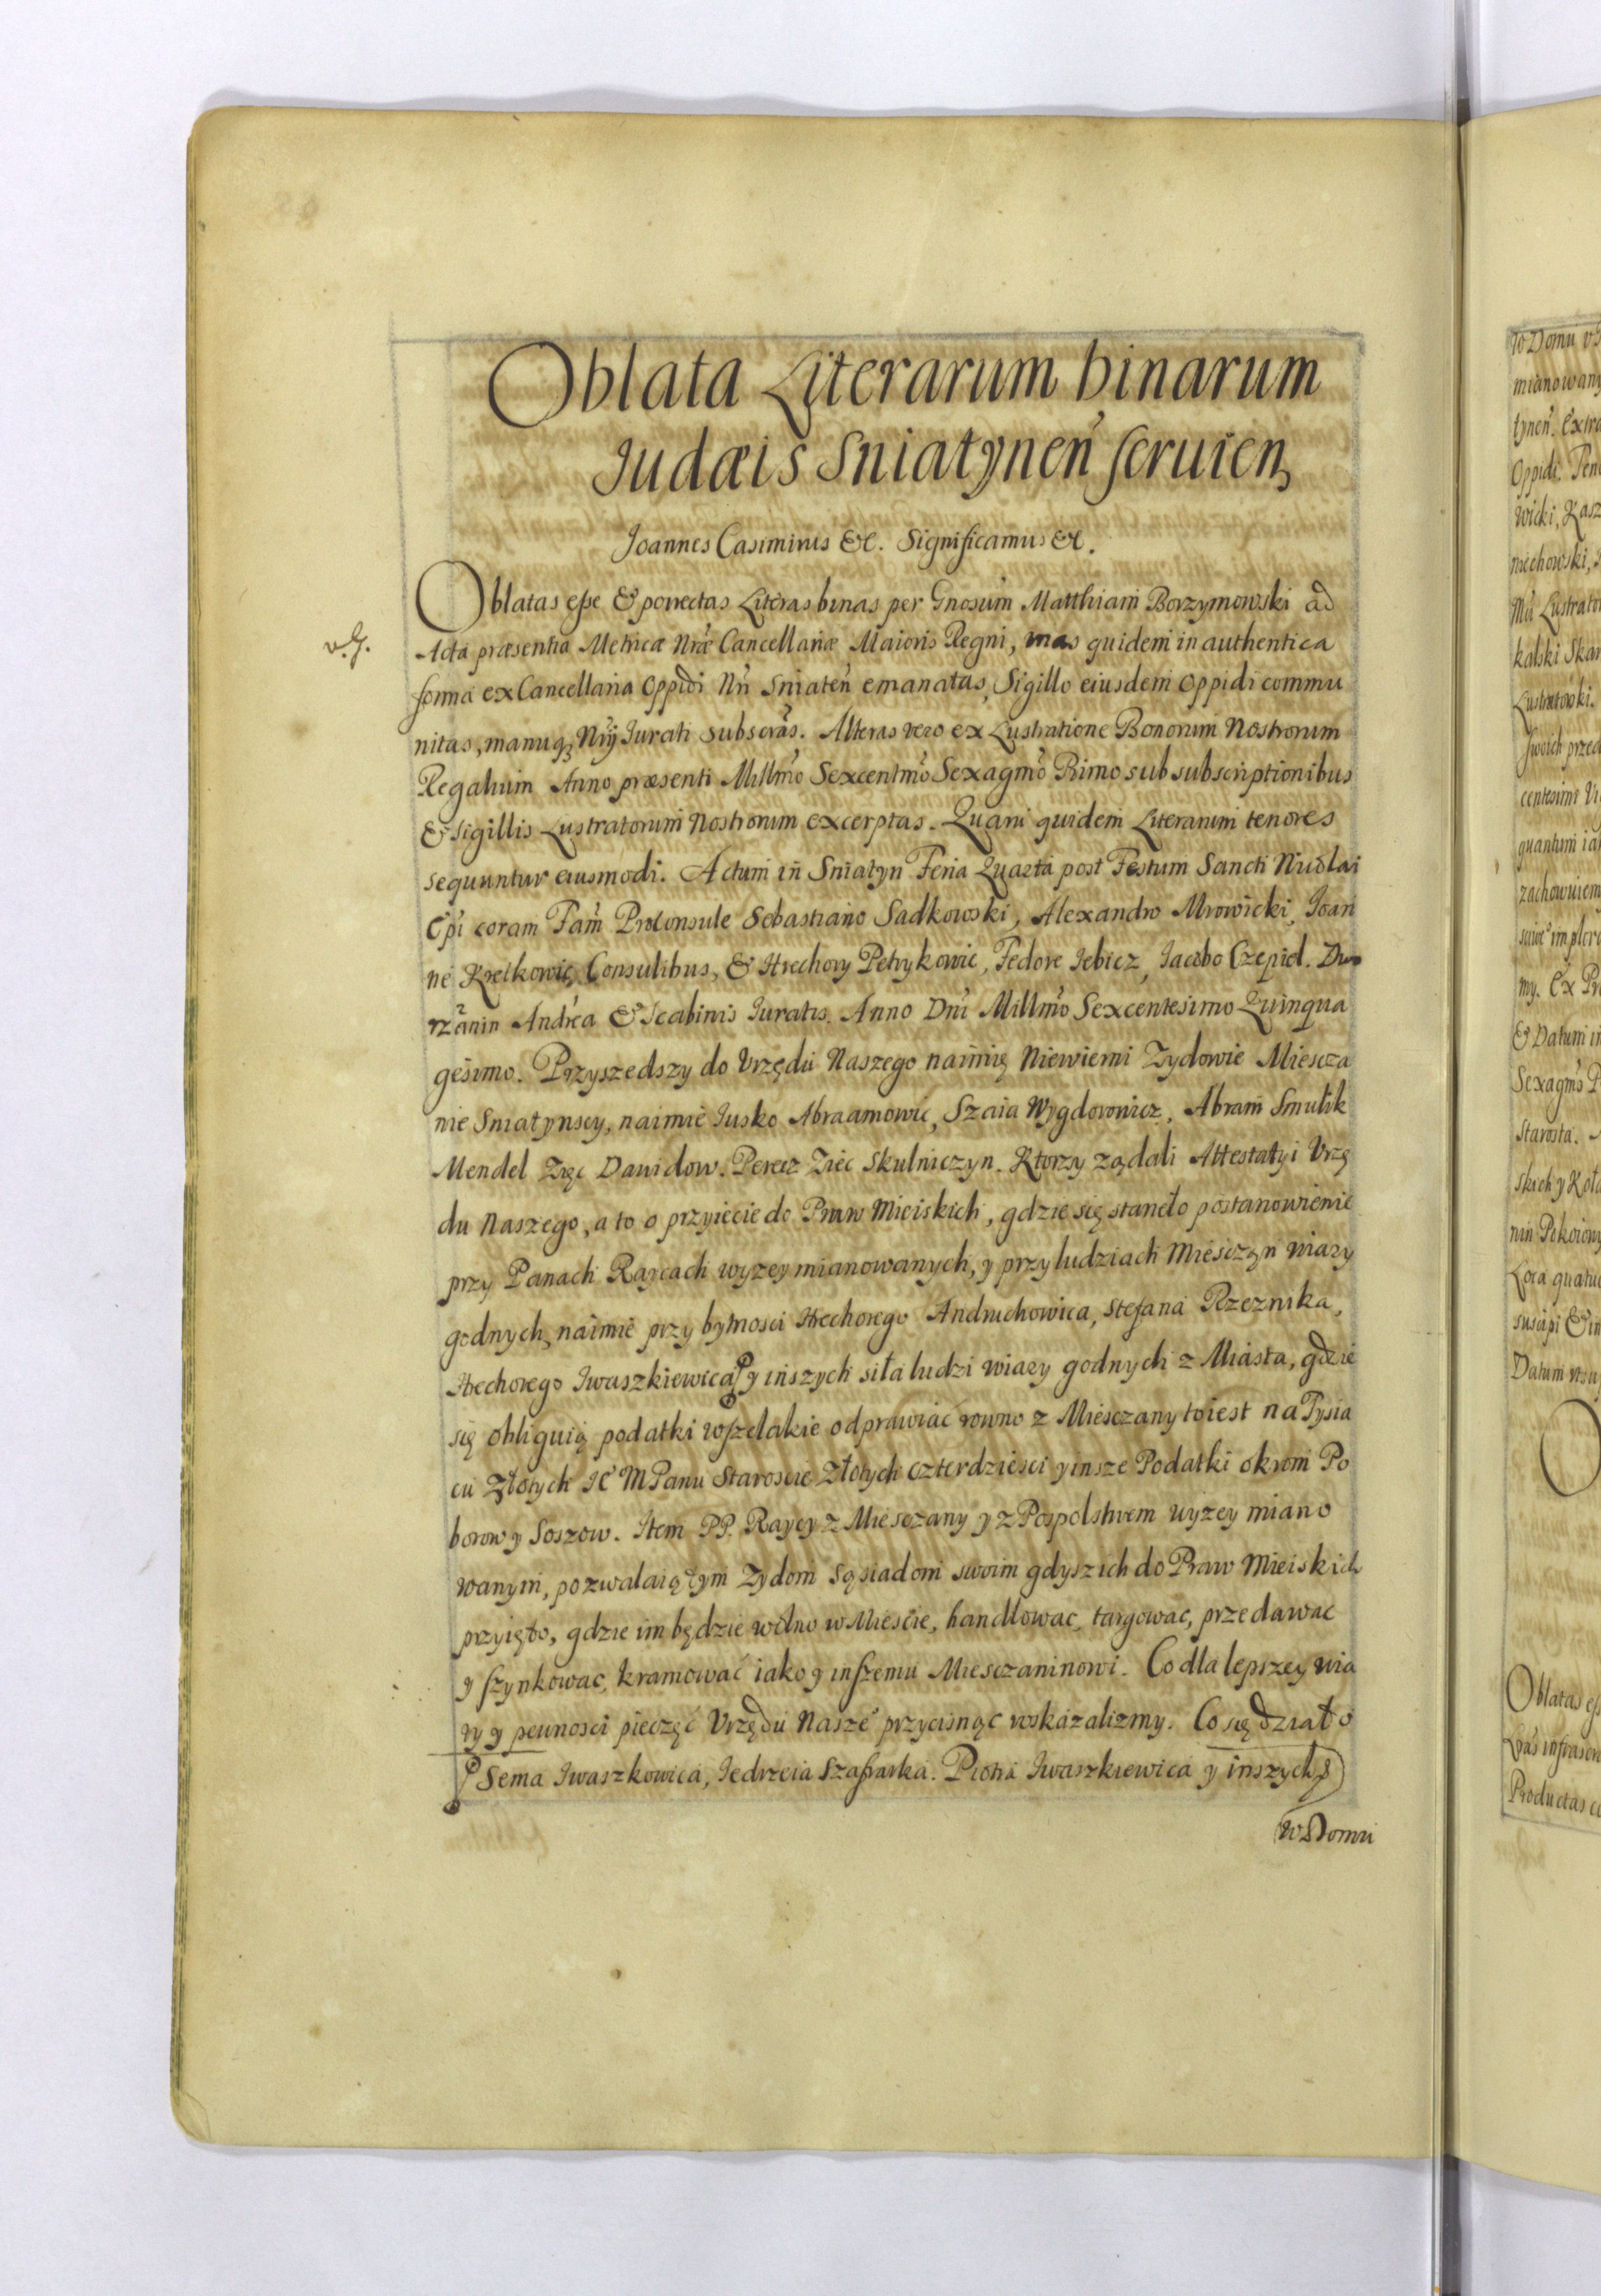 Oblata Literarum binarum
Iudæis Sniatynen̄ seruien,
Joannes Casimirus &c. Significamus &c.
Oblatas esse & porrectas Literas binas per Gnosum Matthiam Borzymowski ad
v. g.
Acta præsentia Metricæ Nræ Cancellariæ Maioris Regni, unas quidem in authentica
forma ex Cancellaria Oppidi Nri Sniaten̄ emanatas, Sigillo eiusdem Oppidi commu
nitas, manuq3 Nrij Iurati subscras. Alteras vero ex Lustratione Bonorum Nostrorum
Regalium Anno præsenti Millmo Sexcentmo Sexagmo Primo sub subscriptionibus
& sigillis Lustratorum Nostrorum excerptas. Quarū quidem Literarum tenores
sequuntur eiusmodi. Actum in Sniatyn Feria Quarta post Festum Sancti Nicolai
Epi coram Fam Proconsule Sebastiano Sadkowski, Alexandro Mrowicki, Joan
ne Kretkowic, Consulibus, & Hrechory Petrykowic, Fedore Iebicz, Iacobo Czepiel. Dwo
rzanin Andrea & Scabinis Iuratis. Anno Dni Millmo Sexcentesimo Quinqua
gesimo. Przyszedszy do Vrzędu Naszego naimię Niewierni Zydowie Miescza
nie Sniatynscy, naimie Jusko Abraamowic, Szaia Wygdorowicz, Abram Smulik
Mendel Zięc Dawidow. Perecz Ziec Skulniczyn. Ktorzy ządali Attestatyi Vrzę
du Naszego, a to o przyiecie do Praw Mieiskich, gdzie się staneło postanowienie
przy Panach Raycach wyzey mianowanych, y przy ludziach Miesczan wiary
godnych, naimie przy bytnosci Hrechorego Andruchowica, Stefana Rzeznika,
Hrechorego Iwaszkiewica y inszych siła ludzi wiary godnych z Miasta, gdzie
się obliguią podatki wszelakie odprawiać rowno z Miesczany to iest na Tysia
cu Złotych Je͞ M Panu Staroscie Złotych czterdziesci y insze Podatki okrom Po
borow y Soszow. Item PP. Raycy z Miesczany y z Pospolstwem wyzey miano
wanym, pozwalaią tym Zydom sąsiadom swoim gdysz ich do Praw Mieiskich
przyięto, gdzie im będzie wolno w Miescie, handlowac, targowac, przedawac
y szynkowac, kramować iako y inszemu Miesczaninowi. Co dla lepszey wia
ry y pewnosci pieczęć Vrzędu Nasze° przycisnąc wskazalizmy. Co się działo
Sema Iwaszkowica, Iedrzeia Szafarka. Piotra Iwaszkiewica y inszych
w Domu